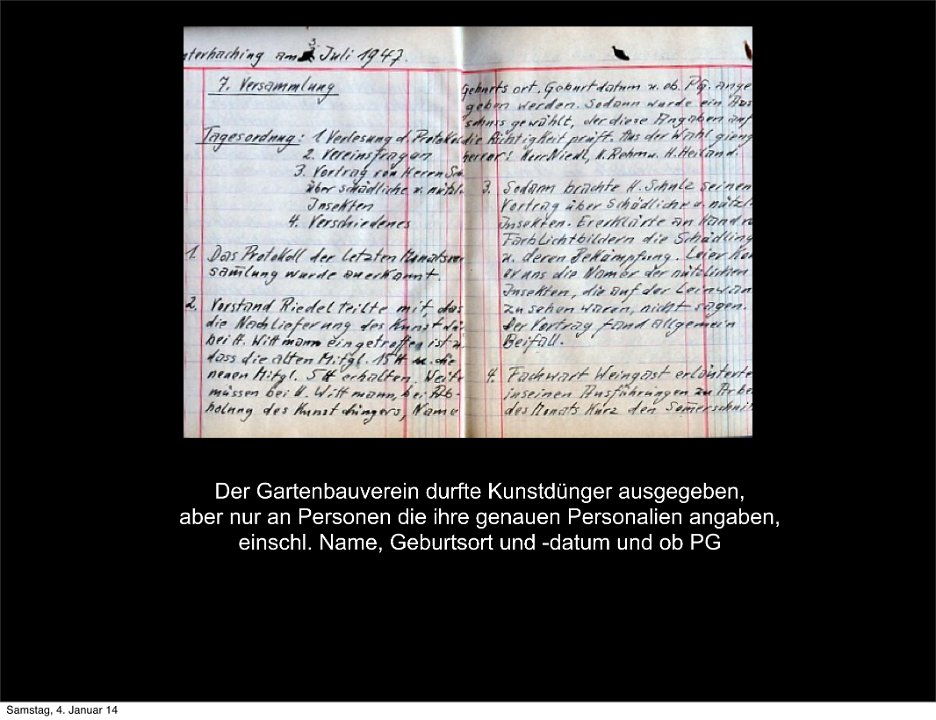 terhaching am 3. Juli 1947.
7. Versammlung
Tagesordnung: 1. Verlesung d. Protokol
2. Vereinsfragen
3. Vortrag von Herrn Sch
über schädliche u. nützl.
Insekten
4. Verschiedenes
1. Das Protokoll der letzten Monatsver
samlung wurde anerkannt.
2. Vorstand Riedel teilte mit, das
die Nachlieferung des Kunstdü
bei H. Wittmann eingetroffen ist u.
dass die alten Mitgl. 15 ℔ u. die
neuen Mitgl. 5 ℔ erhalten. Weite
müssen bei H. Wittmann, bei Ab-
holung des Kunstdüngers, Name
Geburtsort, Geburtdatum u. ob PG. ange
geben werden. Sodann wurde ein Aus
schuss gewählt, der diese Angaben auf
die Richtigkeit prüft. Aus der Wahl gieng
hervor: Herr Niedl, H. Rohm u. H. Heiland.
3. Sodann brachte H. Schulz seinen
Vortrag über Schädliche u. nützl.
Insekten. Er erklärte an Hand v
Farblichtbildern die Schädling
u. deren Bekämpfung. Leier Kon
er uns die Namer der nützlichen
Insekten, die auf der Leinwan
zu sehen waren, nicht sagen.
Der Vortrag fand allgemein
Beifall.
4. Fachwart Weingast erläuterte
in seinen Ausführungen zu Arbei
des Monats Kurz den Somerschnit
Der Gartenbauverein durfte Kunstdünger ausgegeben,
aber nur an Personen die ihre genauen Personalien angaben,
einschl. Name, Geburtsort und -datum und ob PG
Samstag, 4. Januar 14